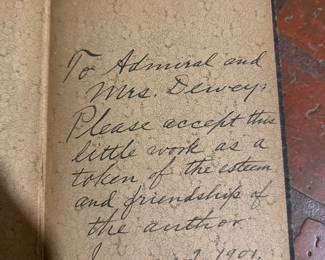 To Admiral and
Mrs. Dewey;
Please accept this
little work as a
token of the esteem
and friendship of
the author
1901.